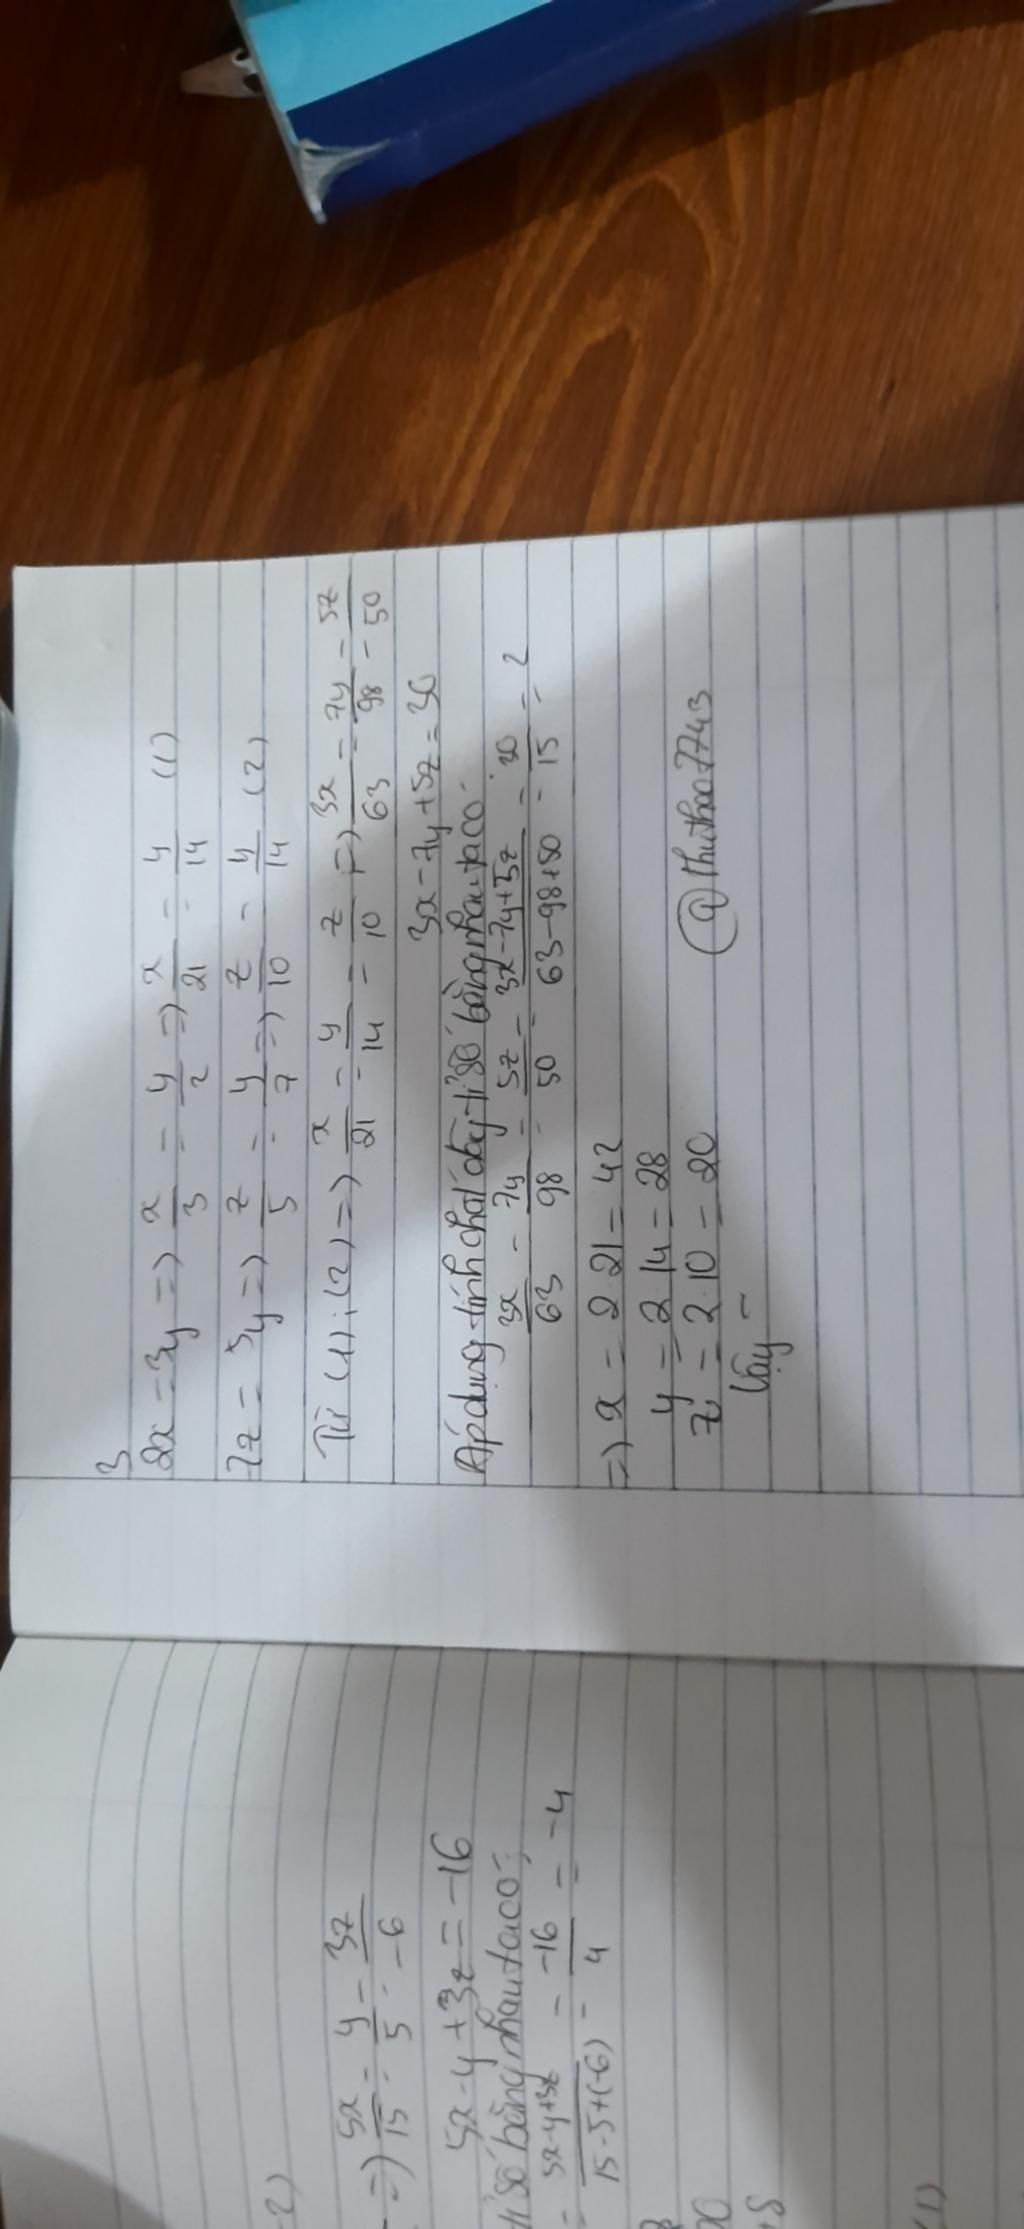 ⇒ 5x/15 = y/5 = 3z/-6
5x-y+3z = -16
tỉ số bằng nhau ta có:
= 5x-y+3z / 15-5+(-6) = -16/4 = -4
3
2x = 3y ⇒ x/3 = y/2 ⇒ x/21 = y/14 (1)
7z = 5y ⇒ z/5 = y/7 ⇒ z/10 = y/14 (2)
Từ (1);(2) ⇒ x/21 = y/14 = z/10 ⇒ 3x/63 = 7y/98 = 5z/50
3x-7y+5z = 30
Áp dụng tính chất dãy tỉ số bằng nhau ta có:
3x/63 = 7y/98 = 5z/50 = 3x-7y+5z / 63-98+50 = 30/15 = 2
⇒ x = 2.21 = 42
y = 2.14 = 28
z = 2.10 = 20
Vậy -
@thuthao7743